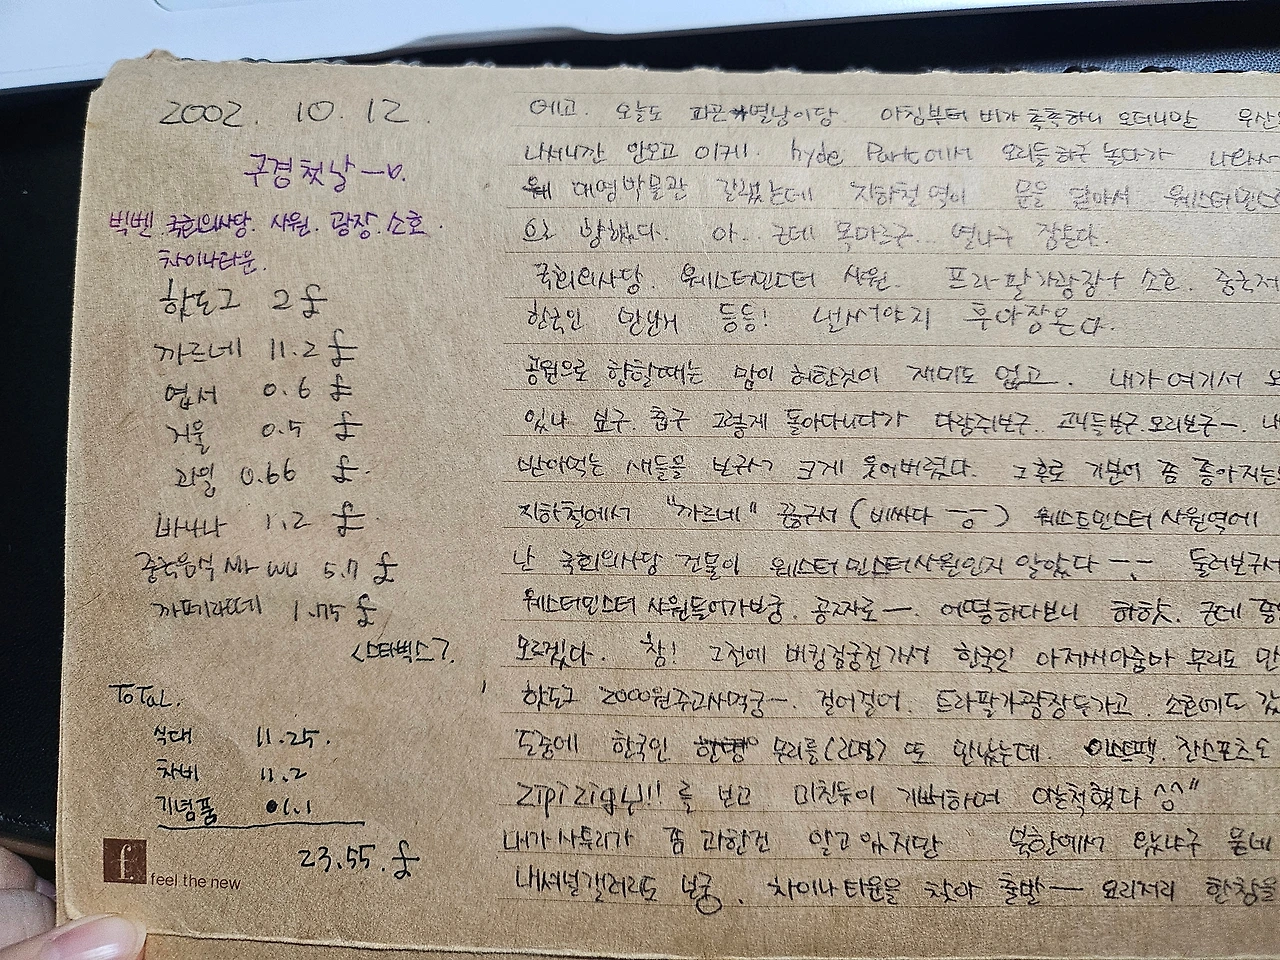 2002. 10. 12.
구경 첫날
빅벤 국회의사당. 사원. 광장. 소호.
차이나타운.
핫도그 2 £
까르네 11.2 £
엽서 0.6 £
거울 0.5 £
과일 0.66 £.
바나나 1.2 £.
중국음식 Mr wu 5.7 £
까페라떼 1.75 £
<스타벅스>.
ToTaL.
식대 11.25.
차비 11.2
기념품 01.1
23.55. £
f feel the new
에고. 오늘도 파란 별남이당. 아침부터 비가 촉촉하니 오더니만 우산
나서니깐 안오고 이게. hyde Park에서 오리들하구 놀다가 나와서
대영박물관 갈랬는데 지하철역이 문을 닫아서 웨스터민스
으로 향했다. 아.. 근데 목마르구. 열나구 장튼다.
국회의사당. 웨스터민스터 사원. 프라팔가광장+ 소호. 중국
한국인 만난거 등등!
공원으로 향할때는 맘이 허한것이 재미도 없고. 내가 여기서
있나 보구. 춥구 그렇게 돌아다니다가 다람쥐보구.. 고니들보구. 오리보구ㅡ. 내
받아먹는 새들을 보구서 크게 웃어버렸다. 그후로 기분이 좀 좋아지는
지하철에서 "까르네" 끊구서 (비싸다 ㅡㅡ) 웨스트민스터 사원역에
난 국회의사당 건물이 웨스터민스터사원인지 알았다 ㅡ.ㅡ 둘러보구서
웨스터민스터 사원들어가보궁. 공짜로ㅡ. 어떻하다보니 하핫. 근데
모르겠다. 참! 그전에 버킹검궁전가서 한국인 아저씨아줌마 무리도 만
핫도그 2000원주고사먹궁ㅡ. 걸어걸어. 트라팔가광장두가고. 소호에도 갔
도중에 한국인 무리를(2명) 또 만났는데. 이스트팩. 잔스포츠도
Zipi Zigi님!! 를 보고 미친듯이 기뻐하며 아는척했다 ^^"
내가 사투리가 좀 과한건 알고 있지만 북한에서 왔냐구 묻네
내셔널갤러리도 보궁. 차이나타운을 찾아 출발ㅡ 요리저리 한참을